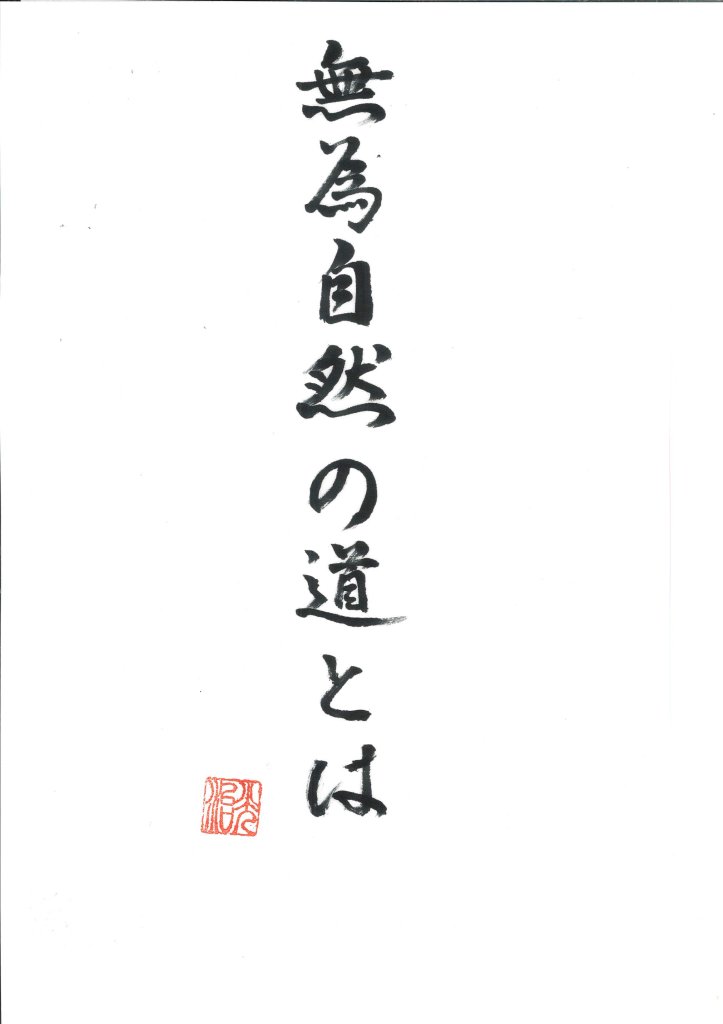 無為自然の道とは